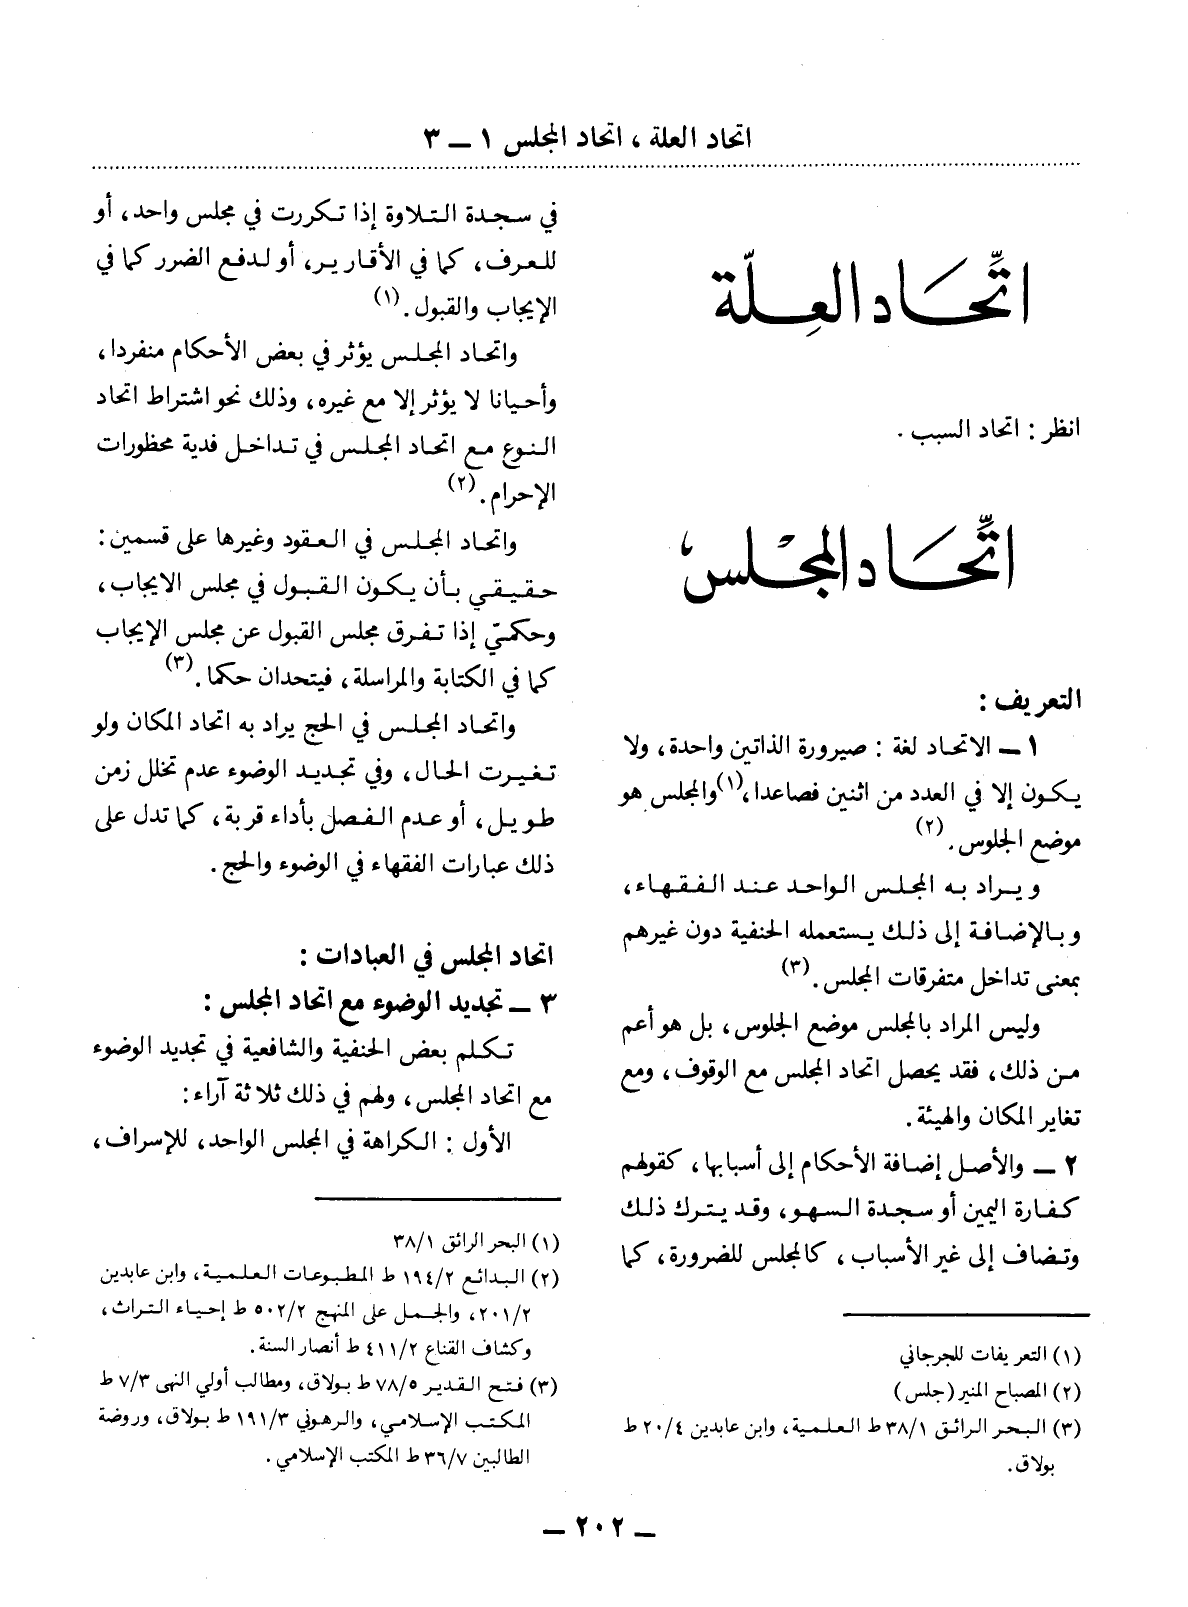 اتحاد العلة ، اتحاد المجلس ١ ــ ٣
اتِّحَاد العِلّة
انظر : اتحاد السبب .
اتِّحَاد المجْلس
التعريف :
١ ــ الاتحاد لغة : صيرورة الذاتين واحدة، ولا
يكون إلا في العدد من اثنين فصاعدا،(١) والمجلس هو
موضع الجلوس. (٢)
ويراد به المجلس الواحد عند الفقهاء،
وبالإضافة إلى ذلك يستعمله الحنفية دون غيرهم
بمعنى تداخل متفرقات المجلس. (٣)
وليس المراد بالمجلس موضع الجلوس، بل هو أعم
من ذلك، فقد يحصل اتحاد المجلس مع الوقوف، ومع
تغاير المكان والهيئة.
٢ ــ والأصل إضافة الأحكام إلى أسبابها، كقولهم
كفارة اليمين أو سجدة السهو، وقد يترك ذلك
وتضاف إلى غير الأسباب، كالمجلس للضرورة، كما
(١) التعريفات للجرجاني
(٢) المصباح المنير (جلس)
(٣) البحر الرائق ٣٨/١ ط العلمية، وابن عابدين ٢٠/٤ ط
بولاق.
في سجدة التلاوة إذا تكررت في مجلس واحد، أو
للعرف، كما في الأقارير، أو لدفع الضرر كما في
الإيجاب والقبول. (١)
واتحاد المجلس يؤثر في بعض الأحكام منفردا،
وأحيانا لا يؤثر إلا مع غيره، وذلك نحو اشتراط اتحاد
النوع مع اتحاد المجلس في تداخل فدية محظورات
الإحرام. (٢)
واتحاد المجلس في العقود وغيرها على قسمين:
حقيقي بأن يكون القبول في مجلس الايجاب،
وحكميّ إذا تفرق مجلس القبول عن مجلس الإيجاب
كما في الكتابة والمراسلة، فيتحدان حكما. (٣)
واتحاد المجلس في الحج يراد به اتحاد المكان ولو
تغيرت الحال، وفي تجديد الوضوء عدم تخلل زمن
طويل، أو عدم الفصل بأداء قربة، كما تدل على
ذلك عبارات الفقهاء في الوضوء والحج.
اتحاد المجلس في العبادات :
٣ ــ تجديد الوضوء مع اتحاد المجلس :
تكلم بعض الحنفية والشافعية في تجديد الوضوء
مع اتحاد المجلس، ولهم في ذلك ثلاثة آراء:
الأول : الكراهة في المجلس الواحد، للإسراف،
(١) البحر الرائق ٣٨/١
(٢) البدائع ١٩٤/٢ ط المطبوعات العلمية، وابن عابدين
٢٠١/٢، والجمل على المنهج ٥٠٢/٢ ط إحياء التراث،
وكشاف القناع ٤١١/٢ ط أنصار السنة.
(٣) فتح القدير ٧٨/٥ ط بولاق، ومطالب أولي النهى ٧/٣ ط
المكتب الإسلامي، والرهوني ١٩١/٣ ط بولاق، وروضة
الطالبين ٣٦/٧ ط المكتب الإسلامي.
ــ ٢٠٢ ــ